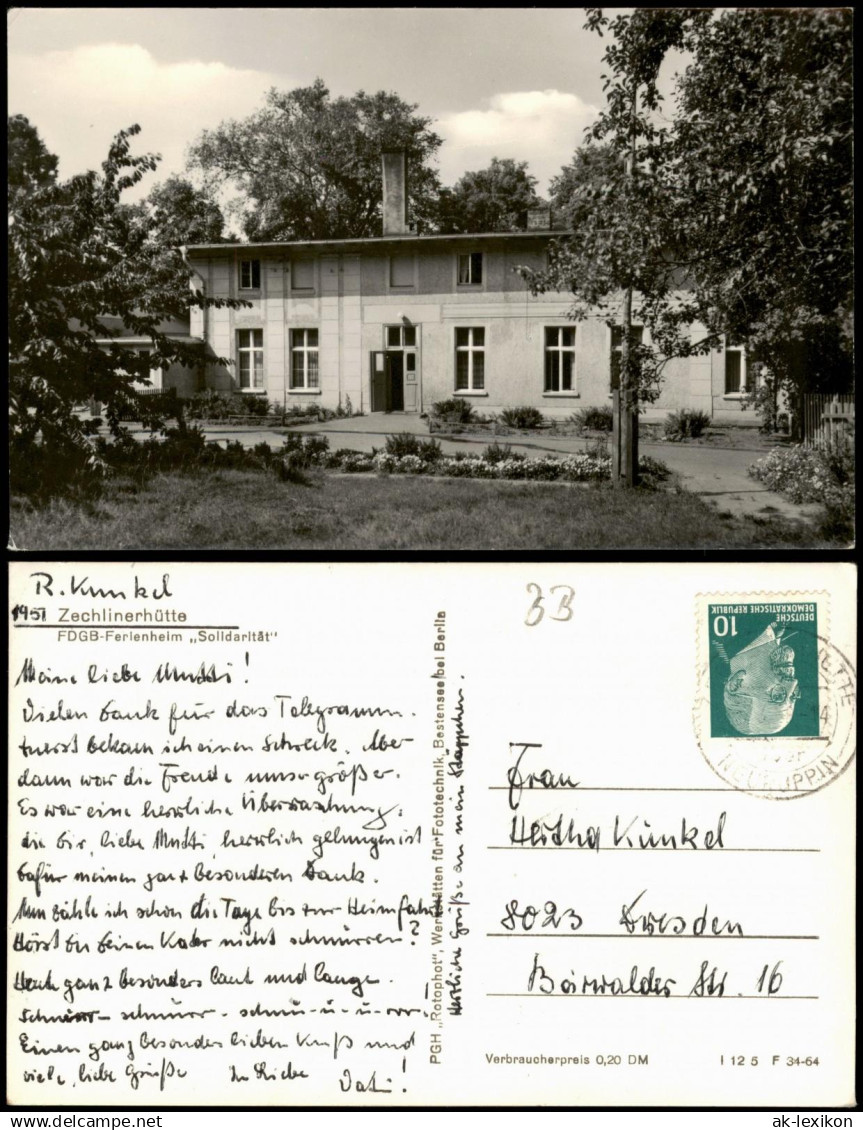 R. Kunkel
1951 Zechlinerhütte
FDGB-Ferienheim „Solidarität"
33
Meine liebe Mutti!
Vielen Dank für das Telegramm.
Zuerst bekam ich einen Schreck. Aber
dann war die Freude umso größer.
Es war eine herrliche Überraschung,
die Dir, liebe Mutti, herrlich gelungen ist
Dafür meinen ganz besonderen Dank.
Nun zähle ich schon die Tage bis zur Heimfahrt
Hörst Du Deinen Kater nicht schnurren?
Heute ganz besonders laut und lange.
Schnurr - schnurr - schnu-u-u-rr!
Einen ganz besonders lieben Kuß und
viele, liebe Grüße In Liebe
Vati!
PGH „Rotophot", Werkstätten für Fototechnik, Bestensee bei Berlin
Herzliche Grüße an mein Käppchen.
DEUTSCHE DEMOKRATISCHE REPUBLIK
10
NEURUPPIN
Frau
Hertha Kunkel
8023 Dresden
Bärwalder Str. 16
Verbraucherpreis 0,20 DM
I 12 5 F 34-64
ak-lexikon